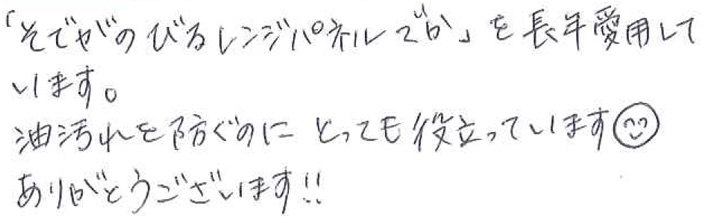 「そでがのびるレンジパネルでか」を長年愛用して
います。
油汚れを防ぐのに とっても役立っています☺
ありがとうございます!!